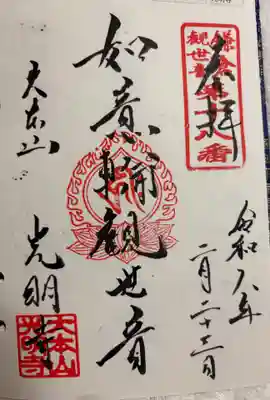 奉拝
鎌倉第十八番
観世音
令和八年
二月二十三日
如意輪観世音
大本山
光明寺
大本山
光明寺